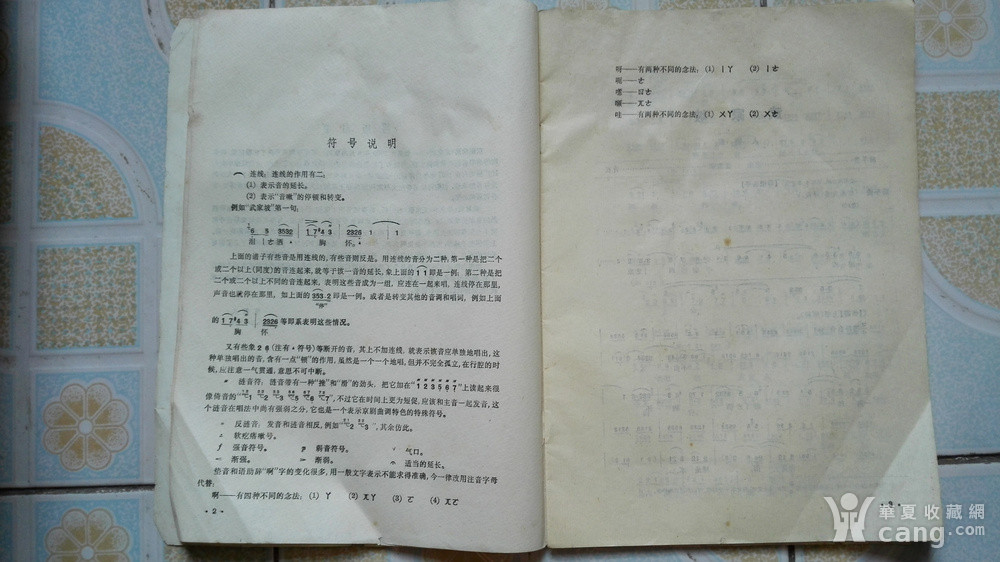 符号说明
⌒ 连线：连线的作用有二：
(1) 表示音的延长。
(2) 表示“音嗽”的停顿和转变。
例如“武家坡”第一句：
6 5 3532 | 1 7 #4 3 | 2326 1 | 1
胸 怀。
上面的谱子有些音是用连线的，有些音则反是。用连线的音分为二种：第一种是把二个
或二个以上（同度）的音连起来，就等于该一音的延长，象上面的 1 1 即是一例；第二种是把
二个或二个以上不同的音连起来，表明这些音成为一组，应连在一起来唱，连线停在那里，
声音也就停在那里，如上面的 353.2 即是一例。或者是转变其他的音调和唱词，例如上面
的 1 7 #4 3 | 2326 等即系表明这些情况。
胸 怀
又有些象 2 6（注有 · 符号）等断开的音，其上不加连线，就表示该音应单独地唱出，这
种单独唱出的音，含有一点“顿”的作用，虽然是一个一个地唱，但并不完全孤立，在行腔的时
候，应注意一气贯通，意思不可中断。
涟音符：涟音带有一种“挫”和“滑”的劲头，把它加在“1 2 3 5 6 7”上读起来很
像倚音的，不过它在时间上更为短促，应该和主音一起发音，这
个涟音在唱法中尚有强弱之分，它也是一个表示京剧曲调特色的特殊符号。
反涟音：发音和涟音相反，例如，其余仿此。
软疙瘩嗽号。
f 强音符号。 斜音符号。 气口。
渐强。 渐弱。 适当的延长。
些音和语助辞“啊”字的变化很多，用一般文字表示不能求得准确，今一律改用注音字母
代替：
啊——有四种不同的念法：(1) ㄚ (2) ㄨㄚ (3) ㄛ (4) ㄨㄛ
·2·
呀——有两种不同的念法：(1) ㄧㄚ (2) ㄧㄜ
呃——ㄜ
哇——有两种不同的念法：(1) ㄨㄚ (2) ㄨㄜ
華夏收藏網
cang.com